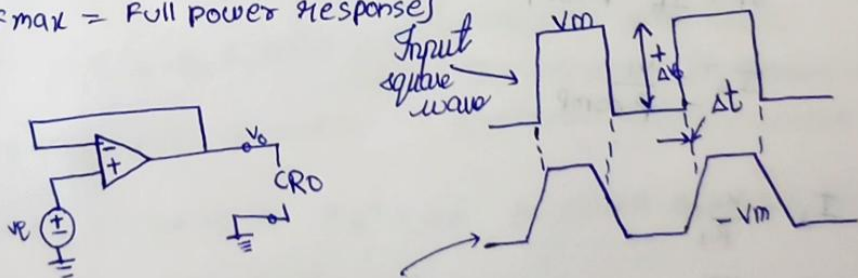 max = Full power response)
Input
square
wave
Vm
+
Δv
Δt
-
+
Vo
CRO
+
-
- Vm